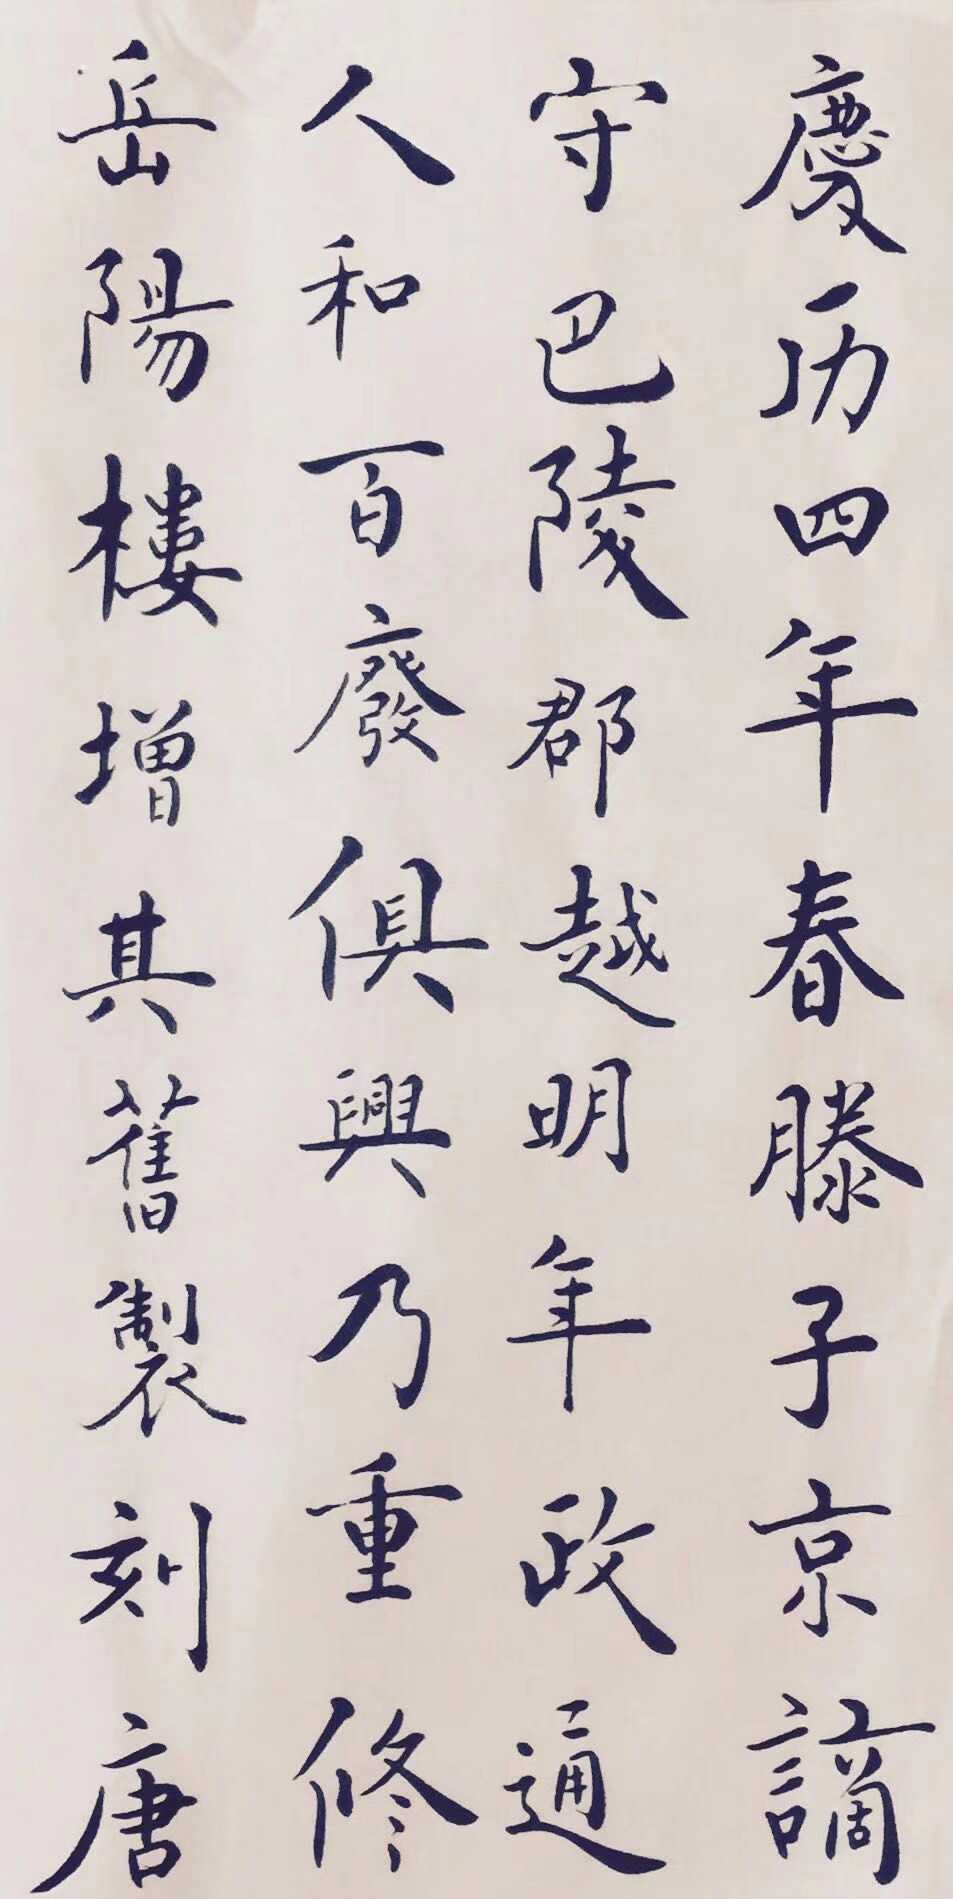 慶历四年春滕子京謫
守巴陵郡越明年政通
人和百廢俱興乃重修
岳陽樓增其舊製刻唐